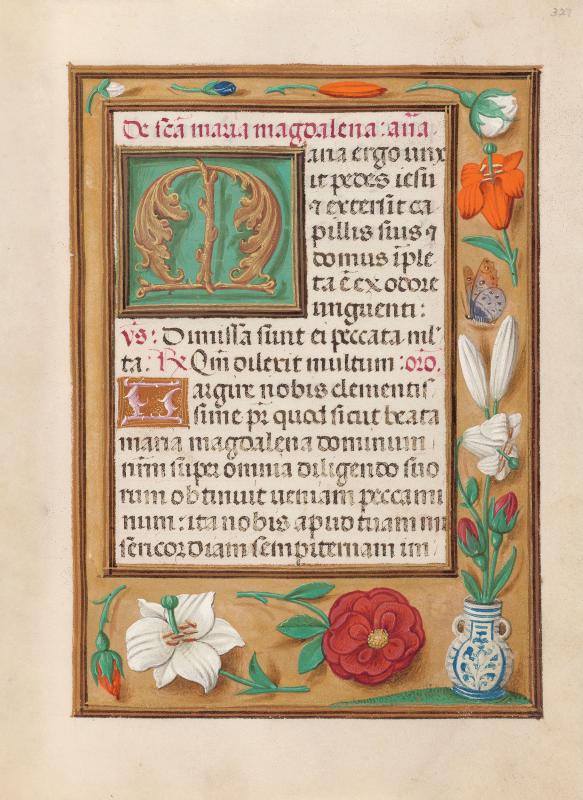 De scā maria magdalena: añа
Maria ergo unx
it pedes iesu
⁊ extersit ca
pillis suis ⁊
domus īple
ta ē ex odore
unguenti:
vs: Dimissa sunt ei peccata mul
ta. Rx Qm̄ dilexit multum :orō.
Largire nobis clementis
sime pr̄ quod sicut beata
maria magdalena dominum
nr̄m super omnia diligendo suo
rum obtinuit ueniam peccami
num: ita nobis apud tuam mi
sericordiam sempiternam im